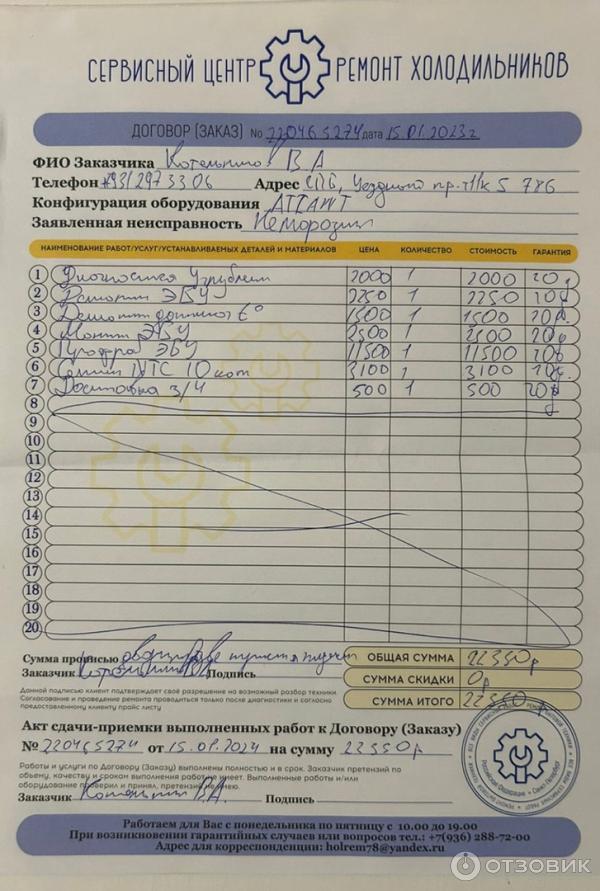 СЕРВИСНЫЙ ЦЕНТР РЕМОНТ ХОЛОДИЛЬНИКОВ
ДОГОВОР (ЗАКАЗ) № 220465274 дата 15.01.2023г
ФИО Заказчика Котельников В А
Телефон +9312973306 Адрес СПб, Уездный пр. 11 к 5 786
Конфигурация оборудования АТЛАНТ
Заявленная неисправность Неморозит
НАИМЕНОВАНИЕ РАБОТ/УСЛУГ/УСТАНАВЛИВАЕМЫХ ДЕТАЛЕЙ И МАТЕРИАЛОВ ЦЕНА КОЛИЧЕСТВО СТОИМОСТЬ ГАРАНТИЯ
1 Диагностика 2000 1 2000
2 Демонтаж ЭБУ 2250 1 2250
3 1500 1 1500
4 Монтаж ЭБУ 1
5 ЭБУ 11500 1 11500
6 NTC 10 ком 3100 1 3100
7 Доставка З/Ч 500 1 500
8
9
10
11
12
13
14
15
17
17
18
19
20
Сумма прописью ОБЩАЯ СУММА 22350р
Заказчик Подпись СУММА СКИДКИ 0р
Данной подписью клиент подтверждает своё разрешение на возможный разбор техники.
Согласование и проведение ремонта проводиться только после диагностики и согласно
предоставленному клиенту прайс листу
СУММА ИТОГО 22350р
Акт сдачи-приемки выполненных работ к Договору (Заказу)
№ 220465274 от 15.01.2024 на сумму 22350р
Работы и услуги по Договору (Заказу) выполнены полностью и в срок. Заказчик претензий по
объему, качеству и срокам выполнения работ не имеет. Выполненные работы и/или
оборудование проверил и принял, претензий не имею.
Заказчик Котельников В.А. Подпись
Российская Федерация • Санкт-Петербург
Работаем для Вас с понедельника по пятницу с 10.00 до 19.00
При возникновении гарантийных случаев или вопросов тел.: +7(936) 288-72-00
Адрес для корреспонденции: holrem78@yandex.ru
ОТЗОВИК